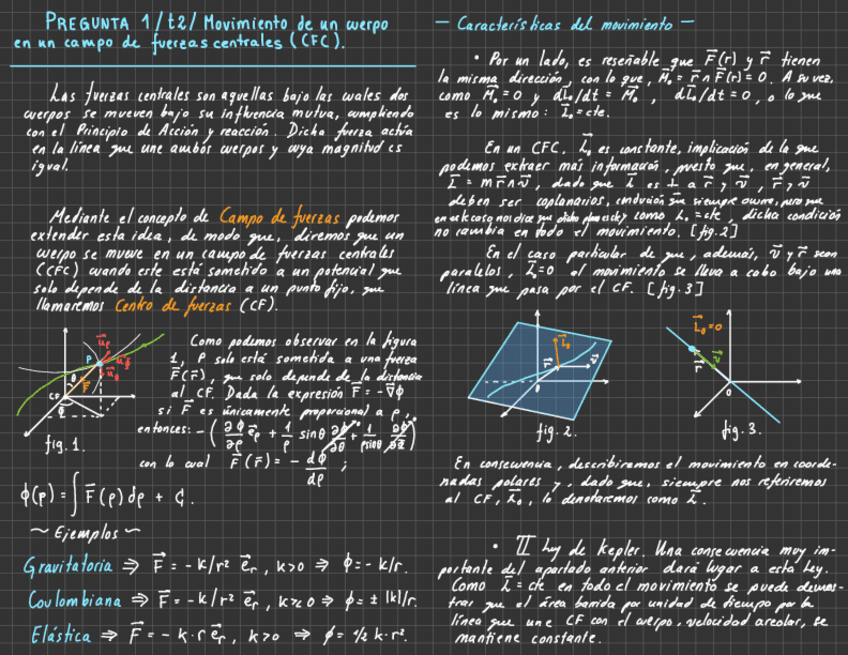 PREGUNTA 1/t2/ Movimiento de un cuerpo
en un campo de fuerzas centrales (CFC).
Las fuerzas centrales son aquellas bajo las cuales dos
cuerpos se mueven bajo su influencia mutua, cumpliendo
con el Principio de Acción y reacción. Dicha fuerza actúa
en la línea que une ambos cuerpos y cuya magnitud es
igual.
Mediante el concepto de Campo de fuerzas podemos
extender esta idea, de modo que, diremos que un
cuerpo se mueve en un campo de fuerzas centrales
(CFC) cuando este está sometido a un potencial que
solo depende de la distancia a un punto fijo, que
llamaremos Centro de fuerzas (CF).
Como podemos observar en la figura
1, P solo está sometida a una fuerza
F⃗(r⃗), que solo depende de la distancia
al CF. Dada la expresión F⃗ = -∇⃗ϕ
si F⃗ es únicamente proporcional a ρ,
entonces: -(∂ϕ/∂ρ e⃗ρ + 1/ρ sinθ ∂ϕ/∂θ + 1/ρsinθ
con lo cual F⃗(r⃗) = - dϕ/dρ ;
fig. 1.
ϕ(ρ) = ∫ F⃗(ρ) dρ + C.
~ Ejemplos ~
Gravitatoria ⇒ F⃗ = -k/r² e⃗r, k>0 ⇒ ϕ = -k/r.
Coulombiana ⇒ F⃗ = -k/r² e⃗r, k≷0 ⇒ ϕ = ± |k|/r.
Elástica ⇒ F⃗ = -k·r e⃗r, k>0 ⇒ ϕ = 1/2 k·r².
— Características del movimiento —
• Por un lado, es reseñable que F⃗(r) y r⃗ tienen
la misma dirección, con lo que, M⃗o = r⃗ ∧ F⃗(r) = 0. A su vez,
como M⃗o = 0 y dL⃗o/dt = M⃗o, dL⃗o/dt = 0, o lo que
es lo mismo: L⃗o = cte.
En un CFC, L⃗o es constante, implicación de la que
podemos extraer más información, puesto que, en general,
L⃗ = m r⃗ ∧ v⃗, dado que L⃗ es ⊥ a r⃗ y v⃗, r⃗ y v⃗
deben ser coplanarios, condución que siempre ocurre, pero que
en este caso nos dice que dicho plano es cte y como L⃗o = cte, dicha condición
no cambia en todo el movimiento. [fig. 2]
En el caso particular de que, además, v⃗ y r⃗ sean
paralelos, L⃗=0 el movimiento se lleva a cabo bajo una
línea que pasa por el CF. [fig. 3]
L⃗o=0
fig. 2.
fig. 3.
En consecuencia, describiremos el movimiento en coorde-
nadas polares y, dado que, siempre nos referiremos
al CF, L⃗o, lo denotaremos como L⃗.
• II Ley de Kepler. Una consecuencia muy im-
portante del apartado anterior dará lugar a esta ley.
Como L⃗ = cte en todo el movimiento se puede demos-
trar que el área barrida por unidad de tiempo por la
línea que une CF con el cuerpo, velocidad areolar, se
mantiene constante.